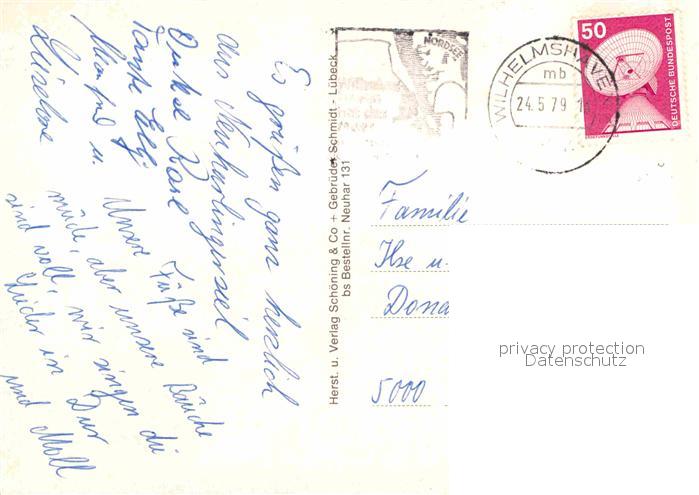 Es grüßen ganz herzlich
aus Neuharlingersiel
Onkel Karl
Tante Elly
Manfred u.
Liselone
Unsere Füße sind
müde, aber unsere Bäuche
sind voll, wir singen die
Lieder in Dur
und Moll
Herst. u. Verlag Schöning & Co + Gebrüder Schmidt - Lübeck
bs Bestellnr. Neuhar 131
NORDSEE
WILHELMSHAVEN
mb
24.5.79
50
DEUTSCHE BUNDESPOST
Familie
Ilse u.
Dona
5000
privacy protection
Datenschutz